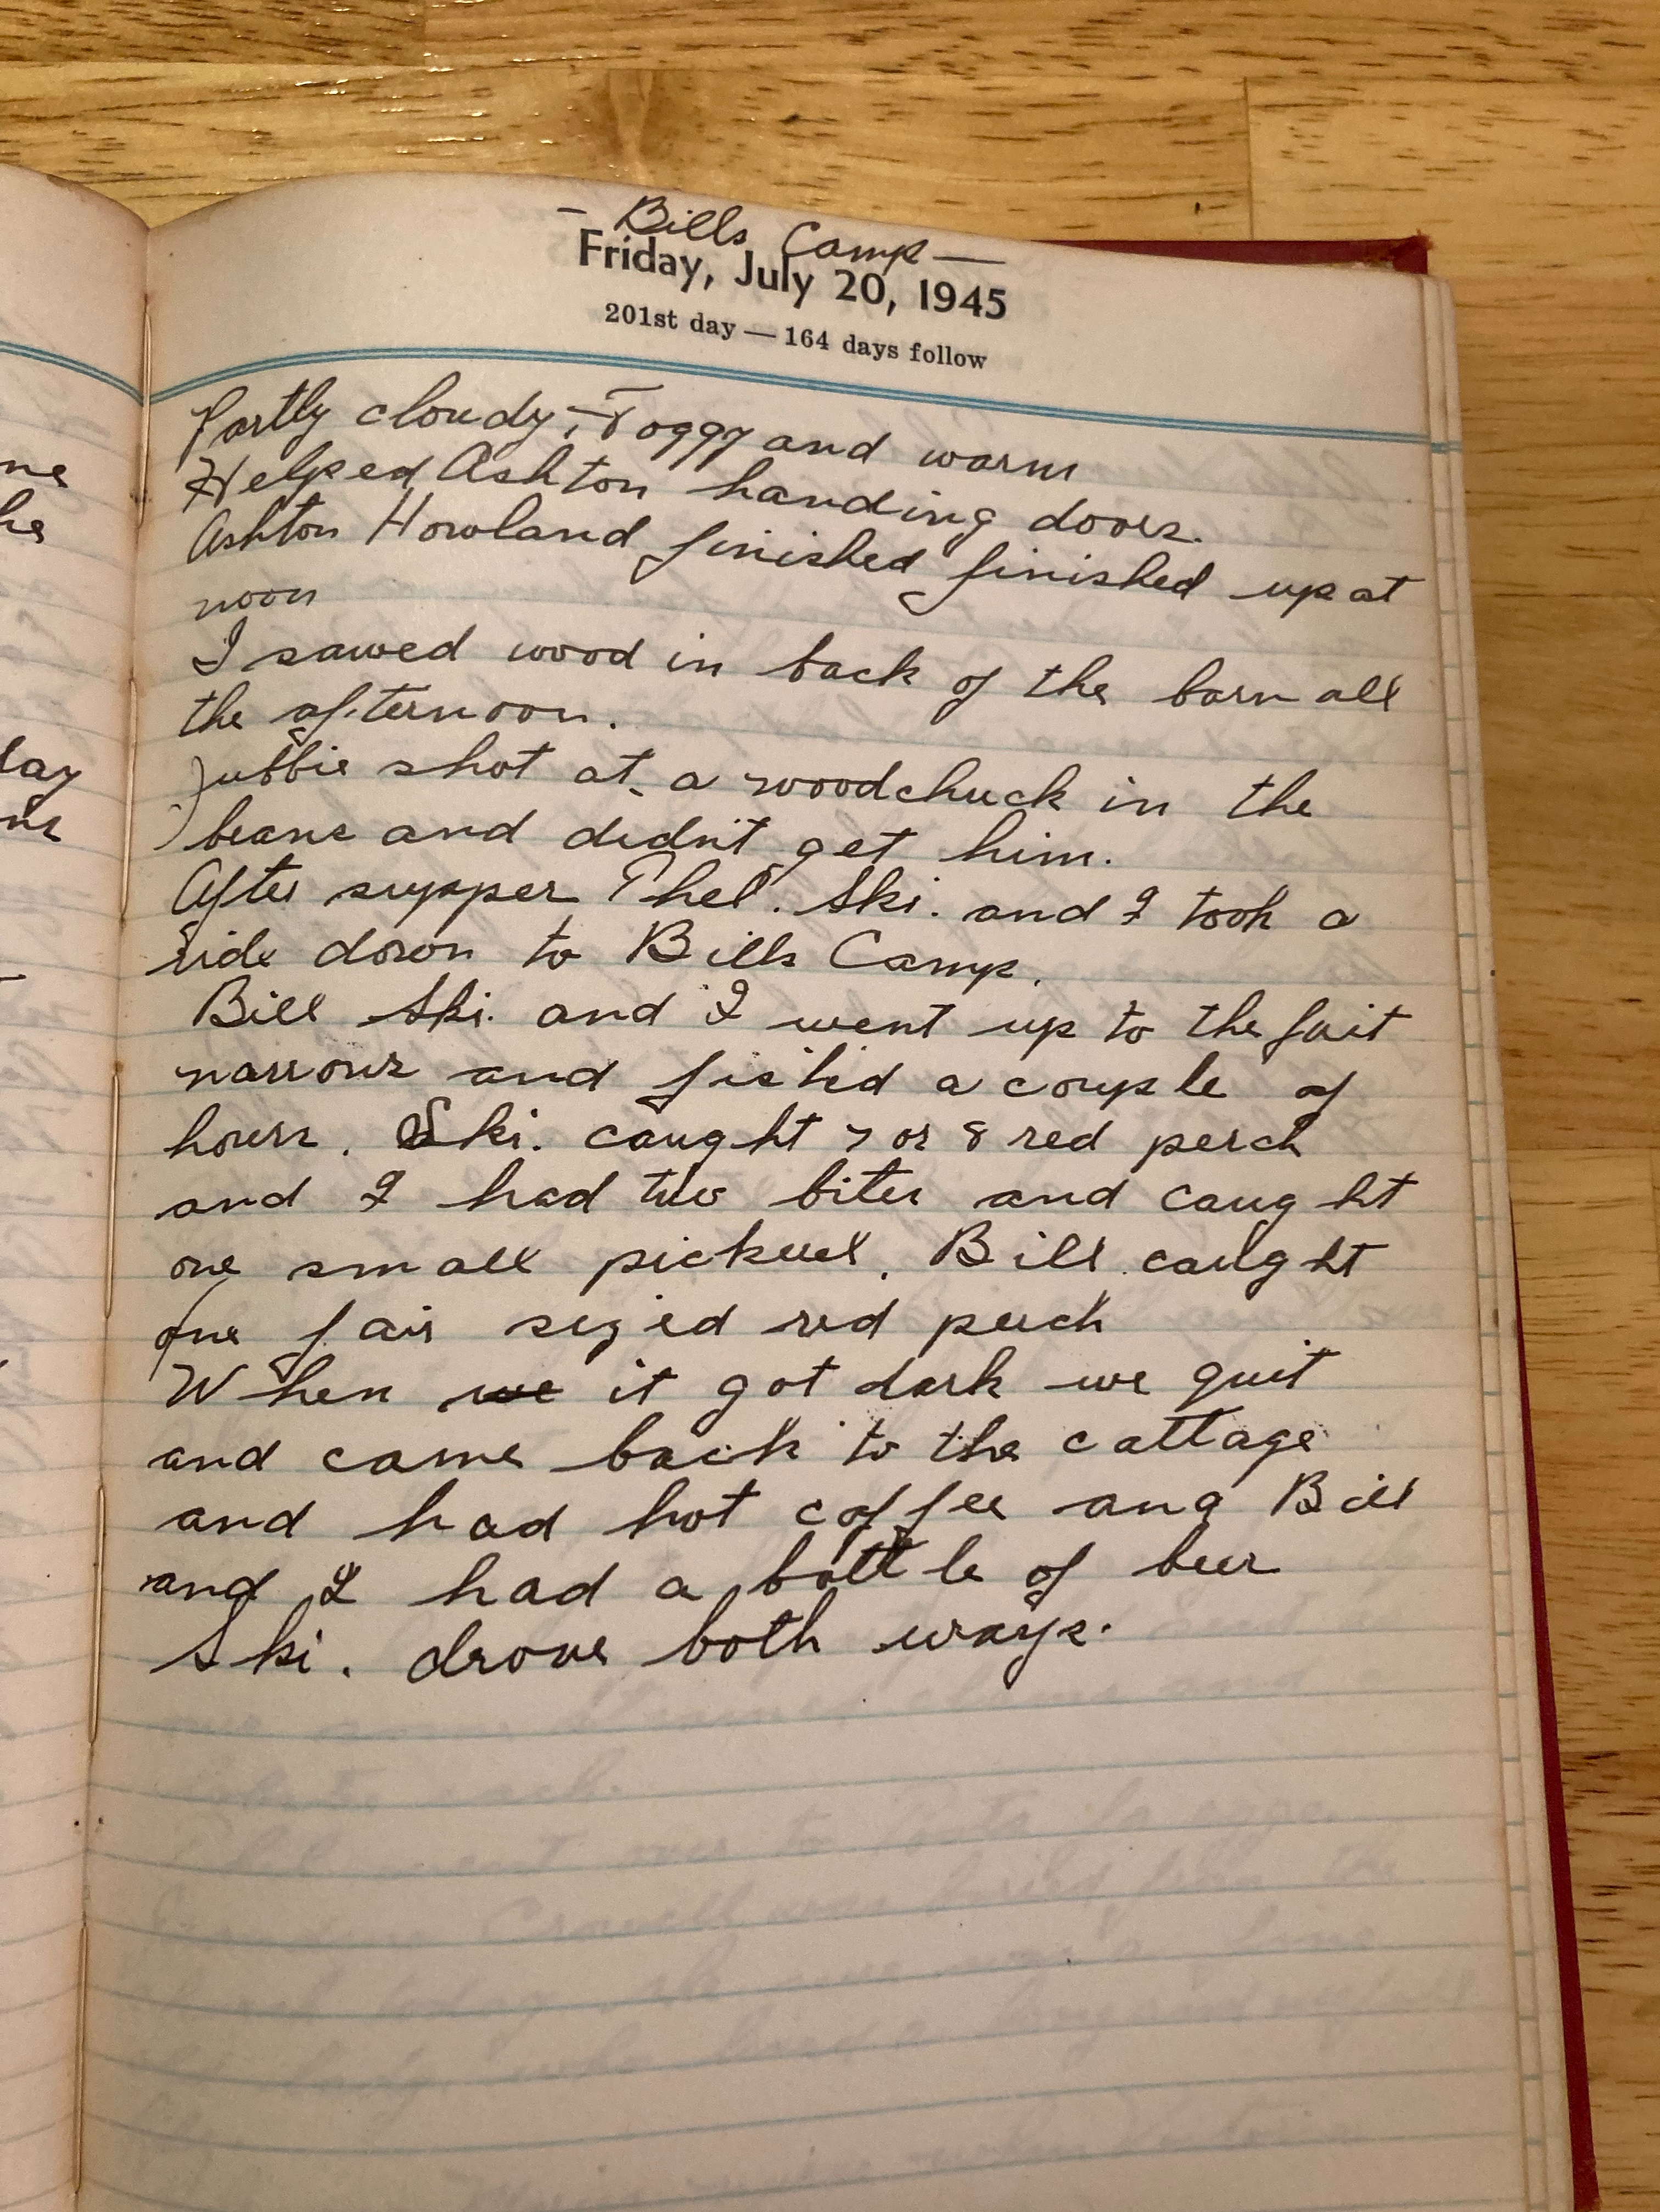 — Bills Camp —
Friday, July 20, 1945
201st day — 164 days follow
Partly cloudy; Foggy and warm
Helped Ashton handing doors.
Ashton Howland finished finished up at
noon
I sawed wood in back of the barn all
the afternoon.
shot at a woodchuck in the
beans and didn't get him.
After supper Phel. Ski. and I took a
ride down to Bills Camp.
Bill Ski. and I went up to the
narrows and fished a couple of
hours. Ski. caught 7 or 8 red perch
and I had two bites and caught
one small pickerel. Bill caught
one fair sized red perch
When we it got dark we quit
and came back to the cottage
and had hot coffee and Bill
and I had a bottle of beer
Ski. drove both ways.